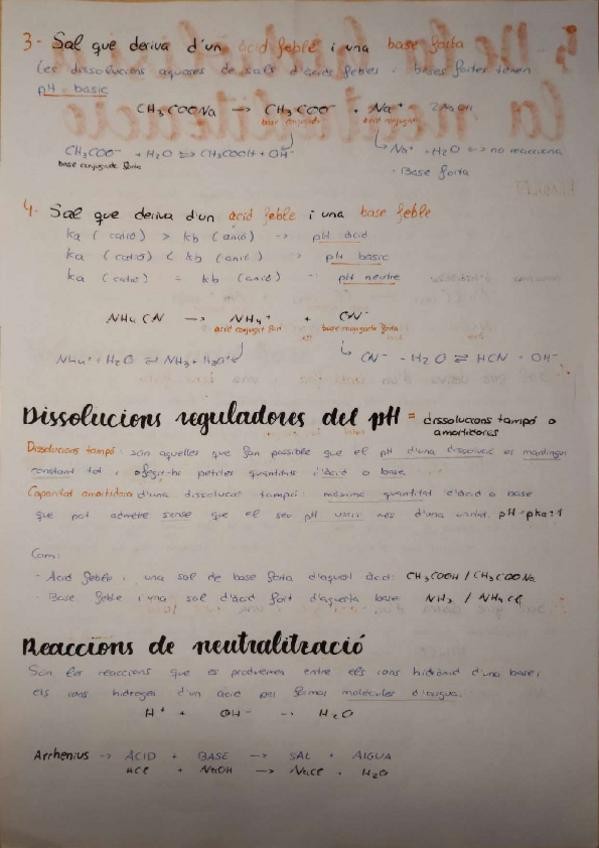 3- Sal que deriva d'un àcid feble i una base forta
Les dissolucions aquoses de sals d'àcids febles i bases fortes tenen
pH basic
CH₃COONa → CH₃COO⁻ + Na⁺
base conjugada
CH₃COO⁻ + H₂O ⇌ CH₃COOH + OH⁻ Na⁺ + H₂O no reacciona
base conjugada forta
· Base forta
4- Sal que deriva d'un àcid feble i una base feble
ka (catió) > kb (anió) → pH àcid
ka (catió) < kb (anió) → pH basic
ka (catió) = kb (anió) → pH neutre
NH₄CN → NH₄⁺ + CN⁻
àcid conjugat fort base conjugada forta
NH₄⁺ + H₂O ⇌ NH₃ + H₃O⁺ CN⁻ + H₂O ⇌ HCN + OH⁻
Dissolucions reguladores del pH = dissolucions tampó o
amortidores
Dissolucions tampó: són aquelles que fan possible que el pH d'una dissolució es mantingui
constant tot i afegir-hi petites quantitats d'àcid o base
Capacitat amortidora d'una dissolució tampó: màxima quantitat d'àcid o base
que pot admetre sense que el seu pH variï més d'una unitat. pH = pka ± 1
Com:
- Àcid feble i una sal de base forta d'aquel àcid: CH₃COOH / CH₃COONa
- Base feble i una sal d'àcid fort d'aquesta base NH₃ / NH₄Cl
Reaccions de neutralització
Són les reaccions que es produeixen entre els ions hidròxid d'una base i
els ions hidrogen d'un àcid per formar molècules d'aigua.
H⁺ + OH⁻ → H₂O
Arrhenius → ÀCID + BASE → SAL + AIGUA
HCl + NaOH → NaCl + H₂O